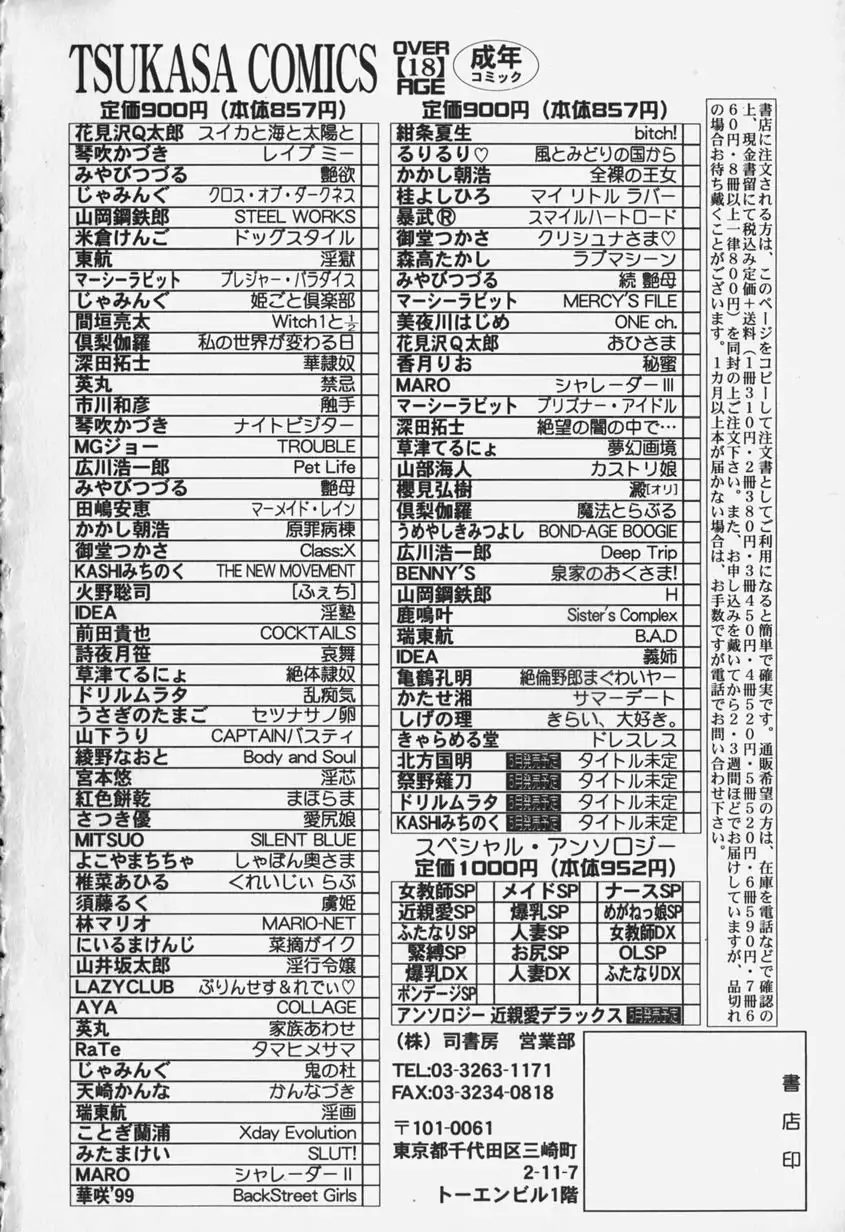 TSUKASA COMICS
OVER
【18】
AGE
成年
コミック
定価900円（本体857円）
花見沢Q太郎 スイカと海と太陽と
琴吹かづき レイプ ミー
みやびつづる 艶欲
じゃみんぐ クロス・オブ・ダークネス
山岡鋼鉄郎 STEEL WORKS
米倉けんご ドッグスタイル
東航 淫獄
マーシーラビット プレジャー・パラダイス
じゃみんぐ 姫ごと倶楽部
間垣亮太 Witch1と½
倶梨伽羅 私の世界が変わる日
深田拓士 華隷奴
英丸 禁忌
市川和彦 触手
琴吹かづき ナイトビジター
MGジョー TROUBLE
広川浩一郎 Pet Life
みやびつづる 艶母
田嶋安恵 マーメイド・レイン
かかし朝浩 原罪病棟
御堂つかさ Class:X
KASHIみちのく THE NEW MOVEMENT
火野聡司 [ふぇち]
IDEA 淫塾
前田貴也 COCKTAILS
詩夜月笹 哀舞
草津てるにょ 絶体隷奴
ドリルムラタ 乱痴気
うさぎのたまご セツナサノ卵
山下うり CAPTAINバスティ
綾野なおと Body and Soul
宮本悠 淫芯
紅色餅乾 まほらま
さつき優 愛尻娘
MITSUO SILENT BLUE
よこやまちちゃ しゃぼん奥さま
椎菜あひる くれいじぃ らぶ
須藤るく 虜姫
林マリオ MARIO-NET
にいるまけんじ 菜摘がイク
山井坂太郎 淫行令嬢
LAZYCLUB ぷりんせす&れでぃ♡
AYA COLLAGE
英丸 家族あわせ
RaTe タマヒメサマ
じゃみんぐ 鬼の杜
天崎かんな かんなづき
瑞東航 淫画
ことぎ蘭浦 Xday Evolution
みたまけい SLUT!
MARO シャレーダーⅡ
華咲'99 BackStreet Girls
定価900円（本体857円）
紺条夏生 bitch!
るりるり♡ 風とみどりの国から
かかし朝浩 全裸の王女
桂よしひろ マイ リトル ラバー
暴武® スマイルハートロード
御堂つかさ クリシュナさま♡
森高たかし ラブマシーン
みやびつづる 続 艶母
マーシーラビット MERCY'S FILE
美夜川はじめ ONE ch.
花見沢Q太郎 おひさま
香月りお 秘蜜
MARO シャレーダーⅢ
マーシーラビット プリズナー・アイドル
深田拓士 絶望の闇の中で…
草津てるにょ 夢幻画境
山部海人 カストリ娘
櫻見弘樹 澱[オリ]
倶梨伽羅 魔法とらぶる
うめやしきみつよし BOND-AGE BOOGIE
広川浩一郎 Deep Trip
BENNY'S 泉家のおくさま!
山岡鋼鉄郎 H
鹿鳴叶 Sister's Complex
瑞東航 B.A.D
IDEA 義姉
亀鶴孔明 絶倫野郎まぐわいヤー
かたせ湘 サマーデート
しげの理 きらい、大好き。
きゃらめる堂 ドレスレス
北方国明 タイトル未定
祭野薙刀 タイトル未定
ドリルムラタ タイトル未定
KASHIみちのく タイトル未定
スペシャル・アンソロジー
定価1000円（本体952円）
女教師SP メイドSP ナースSP
近親愛SP 爆乳SP めがねっ娘SP
ふたなりSP 人妻SP 女教師DX
緊縛SP お尻SP OLSP
爆乳DX 人妻DX ふたなりDX
ボンデージSP
アンソロジー 近親愛デラックス
書店に注文される方は、このページをコピーして注文書としてご利用になると簡単で確実です。通販希望の方は、在庫を電話などで確認の
上、現金書留にて税込み定価＋送料（1冊310円・2冊380円・3冊450円・4冊520円・5冊520円・6冊590円・7冊6
60円・8冊以上一律800円）を同封の上ご注文下さい。また、お申し込みを戴いてから2・3週間ほどでお届けしていますが、品切れ
の場合お待ち戴くことがございます。1カ月以上本が届かない場合は、お手数ですが電話でお問い合わせ下さい。
（株）司書房 営業部
TEL:03-3263-1171
FAX:03-3234-0818
〒101-0061
東京都千代田区三崎町
2-11-7
トーエンビル1階
書店印